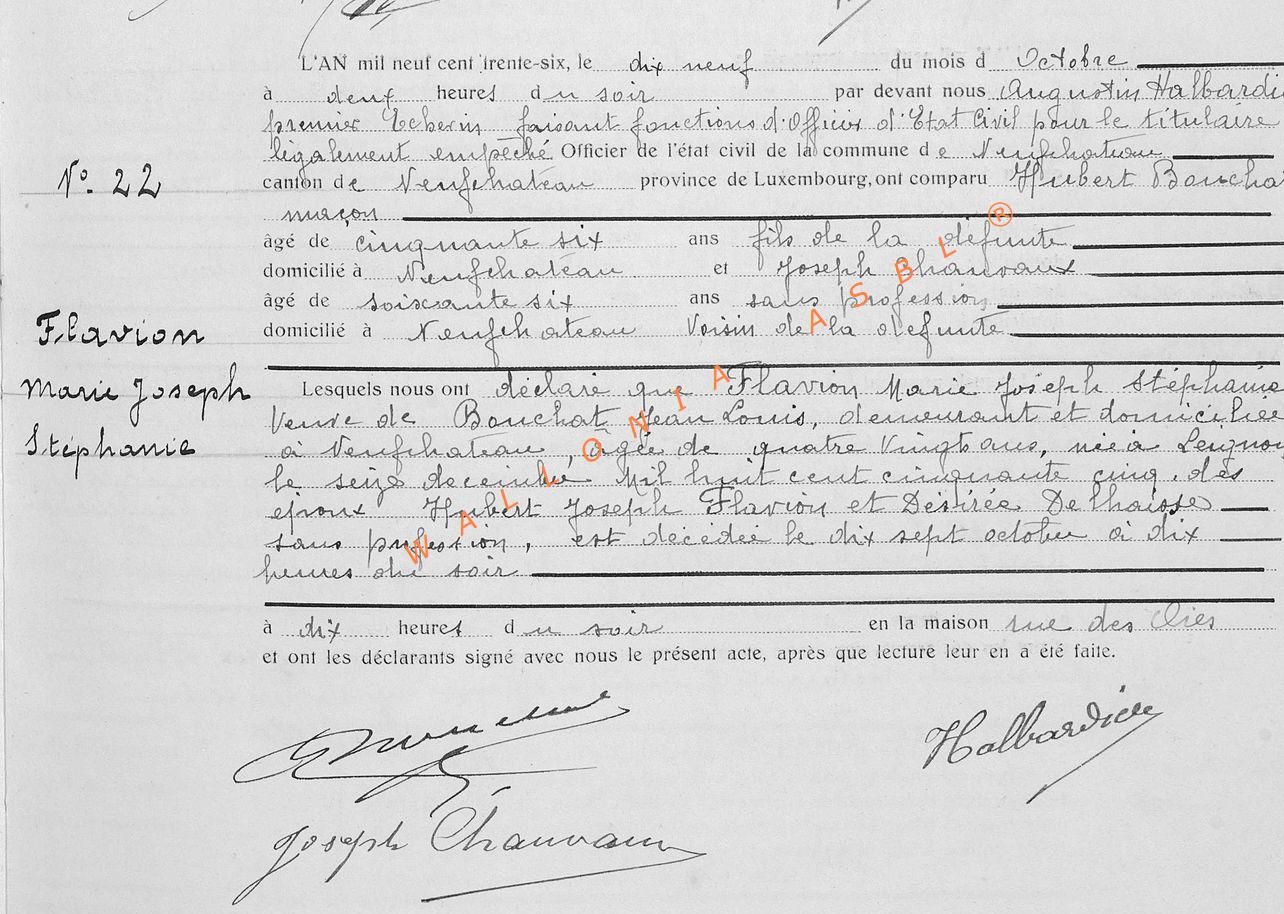 L'AN mil neuf cent trente-six, le dix neuf du mois d Octobre
à deux heures du soir par devant nous Augustin Halbardie
premier Echevin faisant fonctions d'Officier d'Etat Civil pour le titulaire
légalement empeché Officier de l'état civil de la commune de Neufchateau
N° 22
canton de Neufchateau province de Luxembourg, ont comparu Hubert Boucha
maçon
âgé de cinquante six ans fils de la défunte
domicilié à Neufchateau et Joseph Chauvaux
âgé de soixante six ans sans profession
domicilié à Neufchateau Voisin de la defunte
Flavion
Marie Joseph
Stéphanie
Lesquels nous ont déclaré que Flavion Marie Joseph Stéphanie
Veuve de Bouchat Jean Louis, demeurant et domiciliée
à Neufchateau, âgée de quatre Vingt ans, née à Leigno
le seize decembre Mil huit cent cinquante cinq, des
époux Hubert Joseph Flavion et Désirée Delhaisse
sans profession, est décédée le dix sept octobre à dix
heures du soir
à dix heures du soir en la maison rue des
et ont les déclarants signé avec nous le présent acte, après que lecture leur en a été faite.
Halbardier
Joseph Chauvaux
WALLONIA ASBL ®